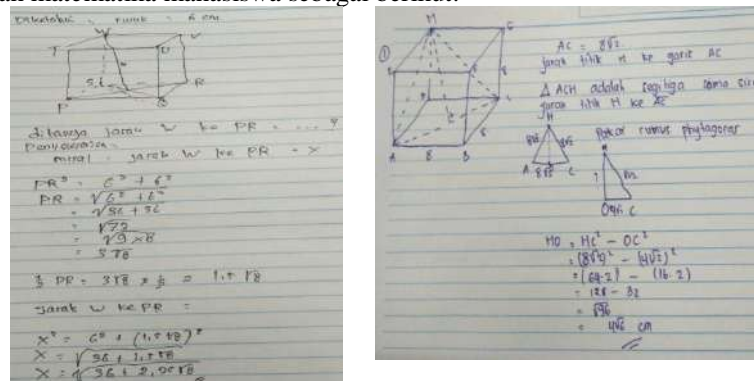 an matematika mahasiswa sebagai berikut.
Diketahui : rusuk = 6 cm
W
V
T
U
S
R
P
Q
ditanya jarak W ke PR = .... ?
Penyelesaian
misal : jarak W ke PR = X
PR² = 6² + 6²
PR = √6² + 6²
= √36 + 36
= √72
= √9 x 8
= 3√8
½ PR = 3√8 x ½ = 1,5 √8
jarak W ke PR =
X² = 6² + (1,5 √8)²
X = √36 + 1,5 √8
X = √36 + 2,25√8
①
H
G
A
8
B
AC = 8√2
jarak titik H ke garis AC
Δ ACH adalah segitiga sama sisi
jarak titik H ke AC
H
8√2
8√2
A 8√2 C
Pakai rumus phytagoras
H
?
O 4√2 C
HO = HC² - OC²
= (8√2)² - (4√2)²
= (64.2) - (16.2)
= 128 - 32
= √96
= 4√6 cm